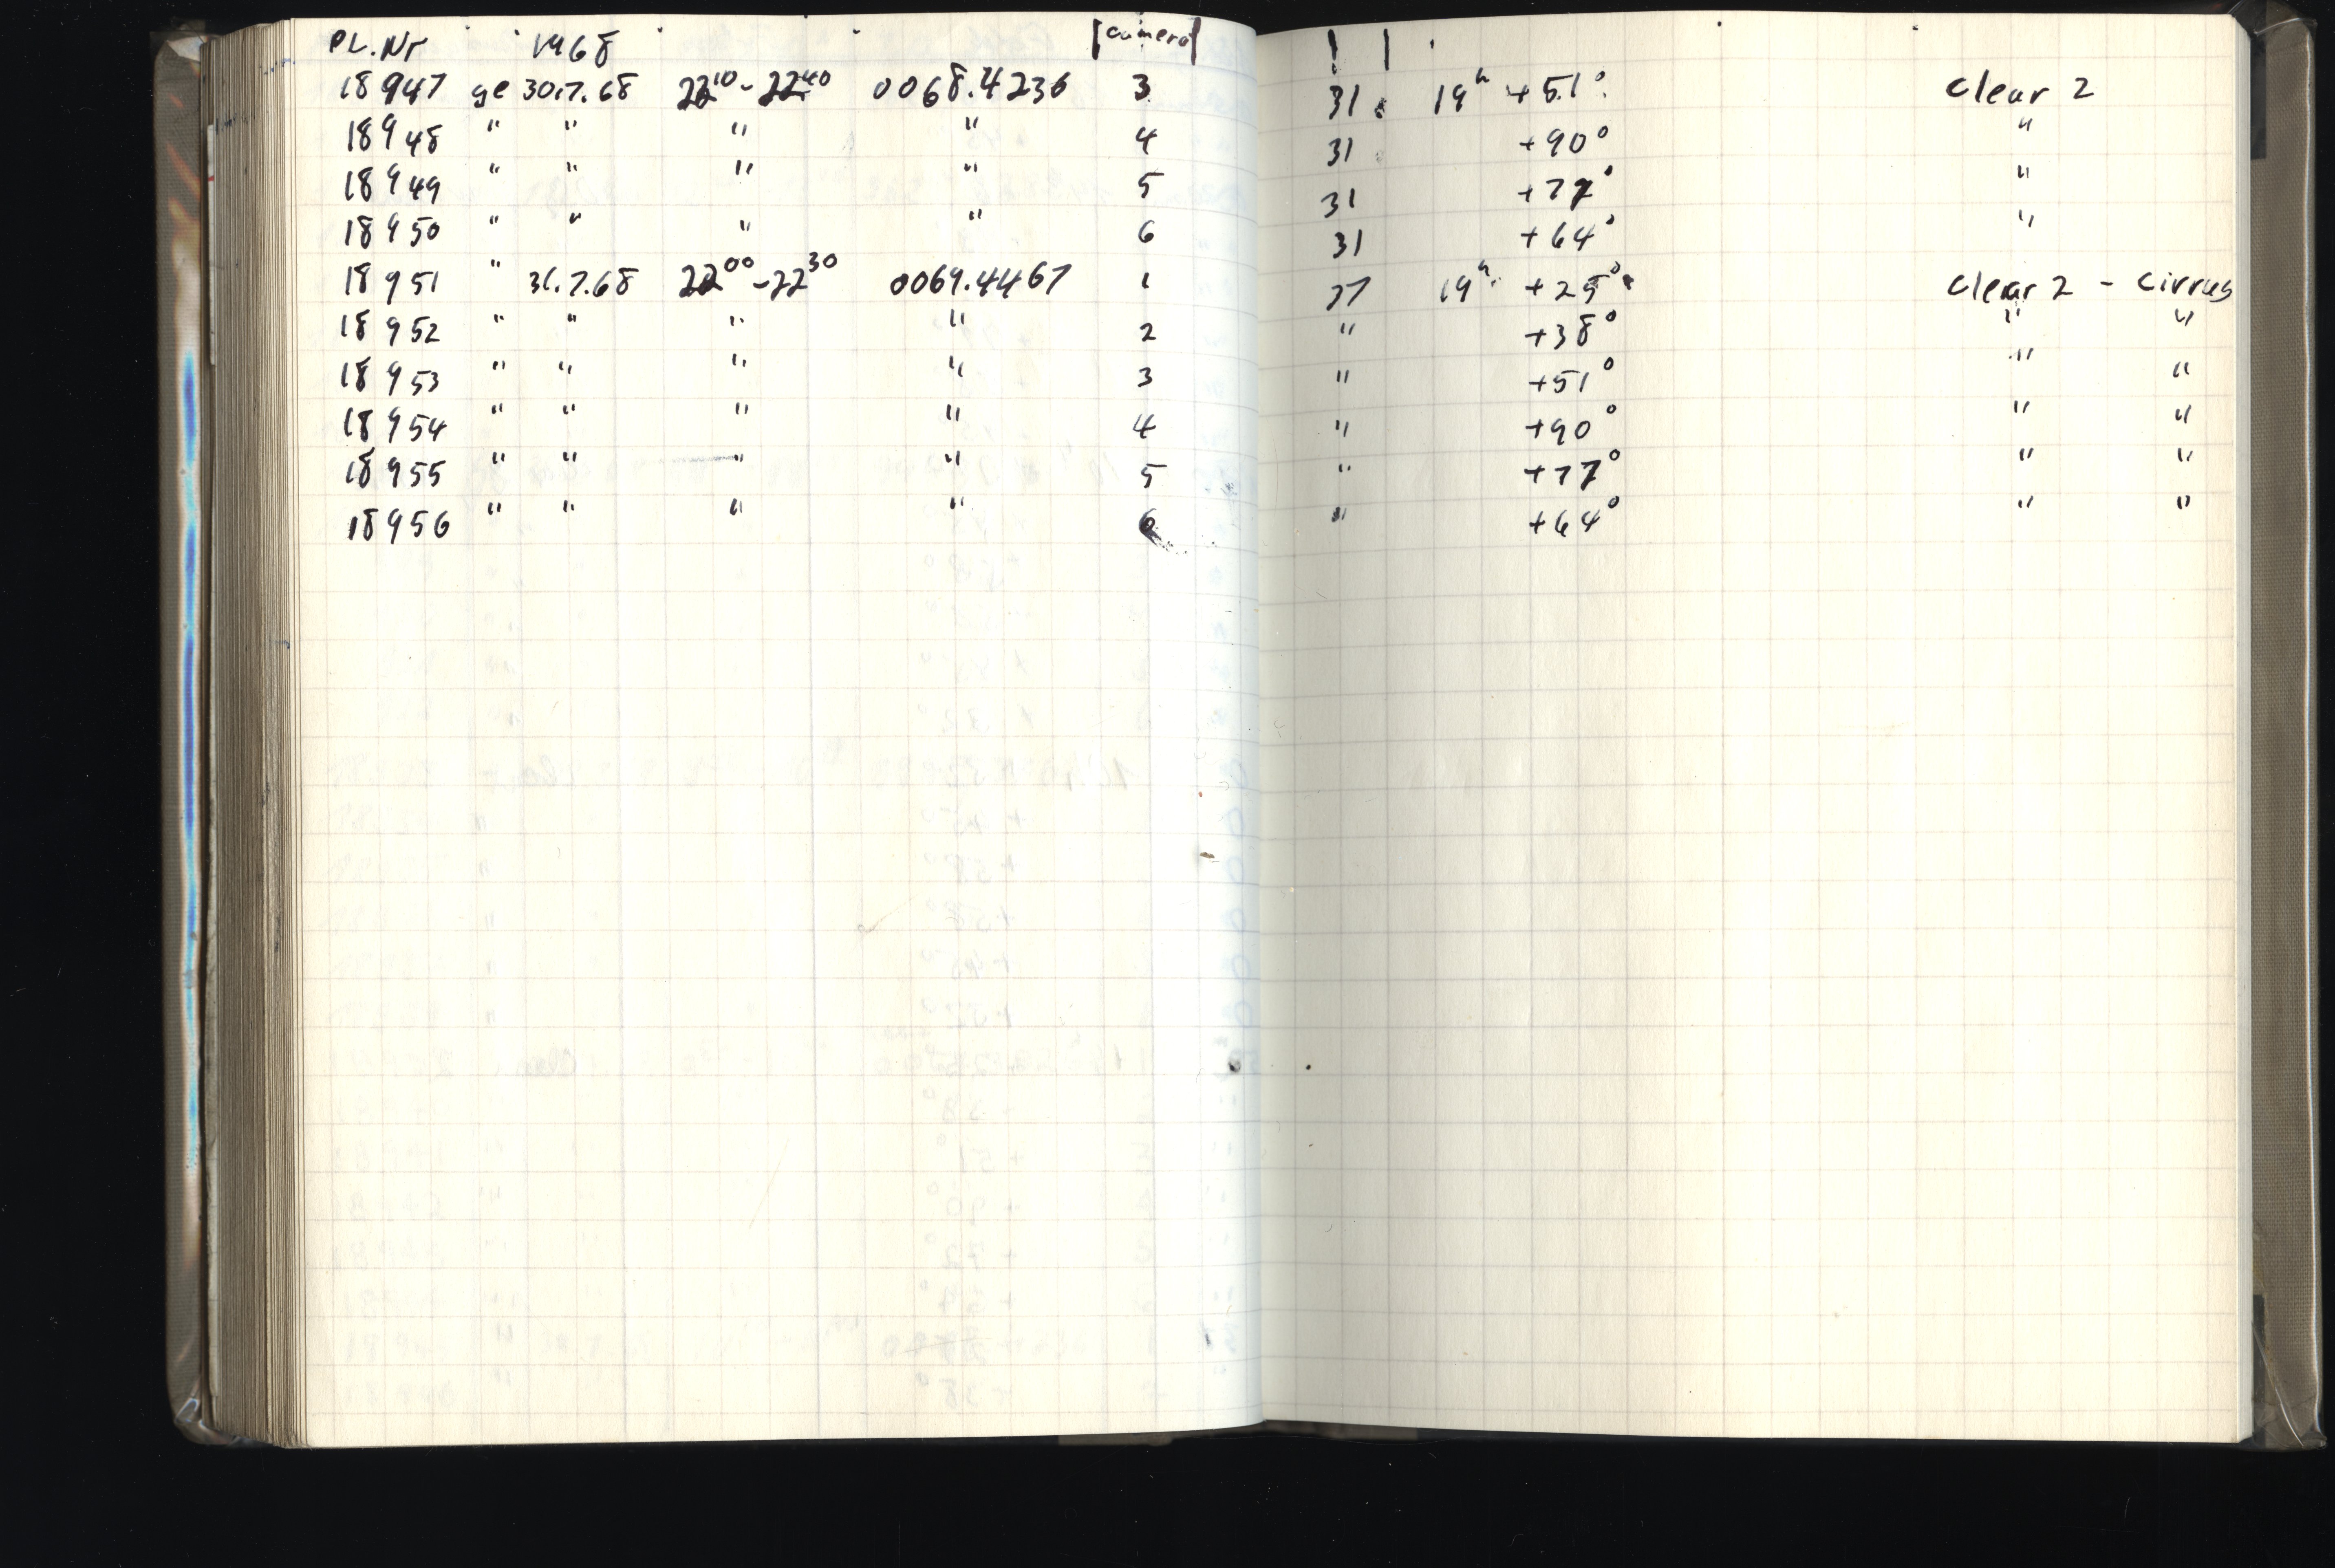 PL.Nr 1968 camera
18947 ge 30.7.68 22¹⁰-22⁴⁰ 0068.4236 3 31 19ʰ +51° clear 2
18948 " " " " 4 31 +90° "
18949 " " " " 5 31 +77° "
18950 " " " " 6 31 +64° "
18951 " 31.7.68 22⁰⁰-22³⁰ 0069.4467 1 27 19ʰ +25° clear 2 - cirrus
18952 " " " " 2 " +38° " "
18953 " " " " 3 " +51° " "
18954 " " " " 4 " +90° " "
18955 " " " " 5 " +77° " "
18956 " " " " 6 " +64° " "